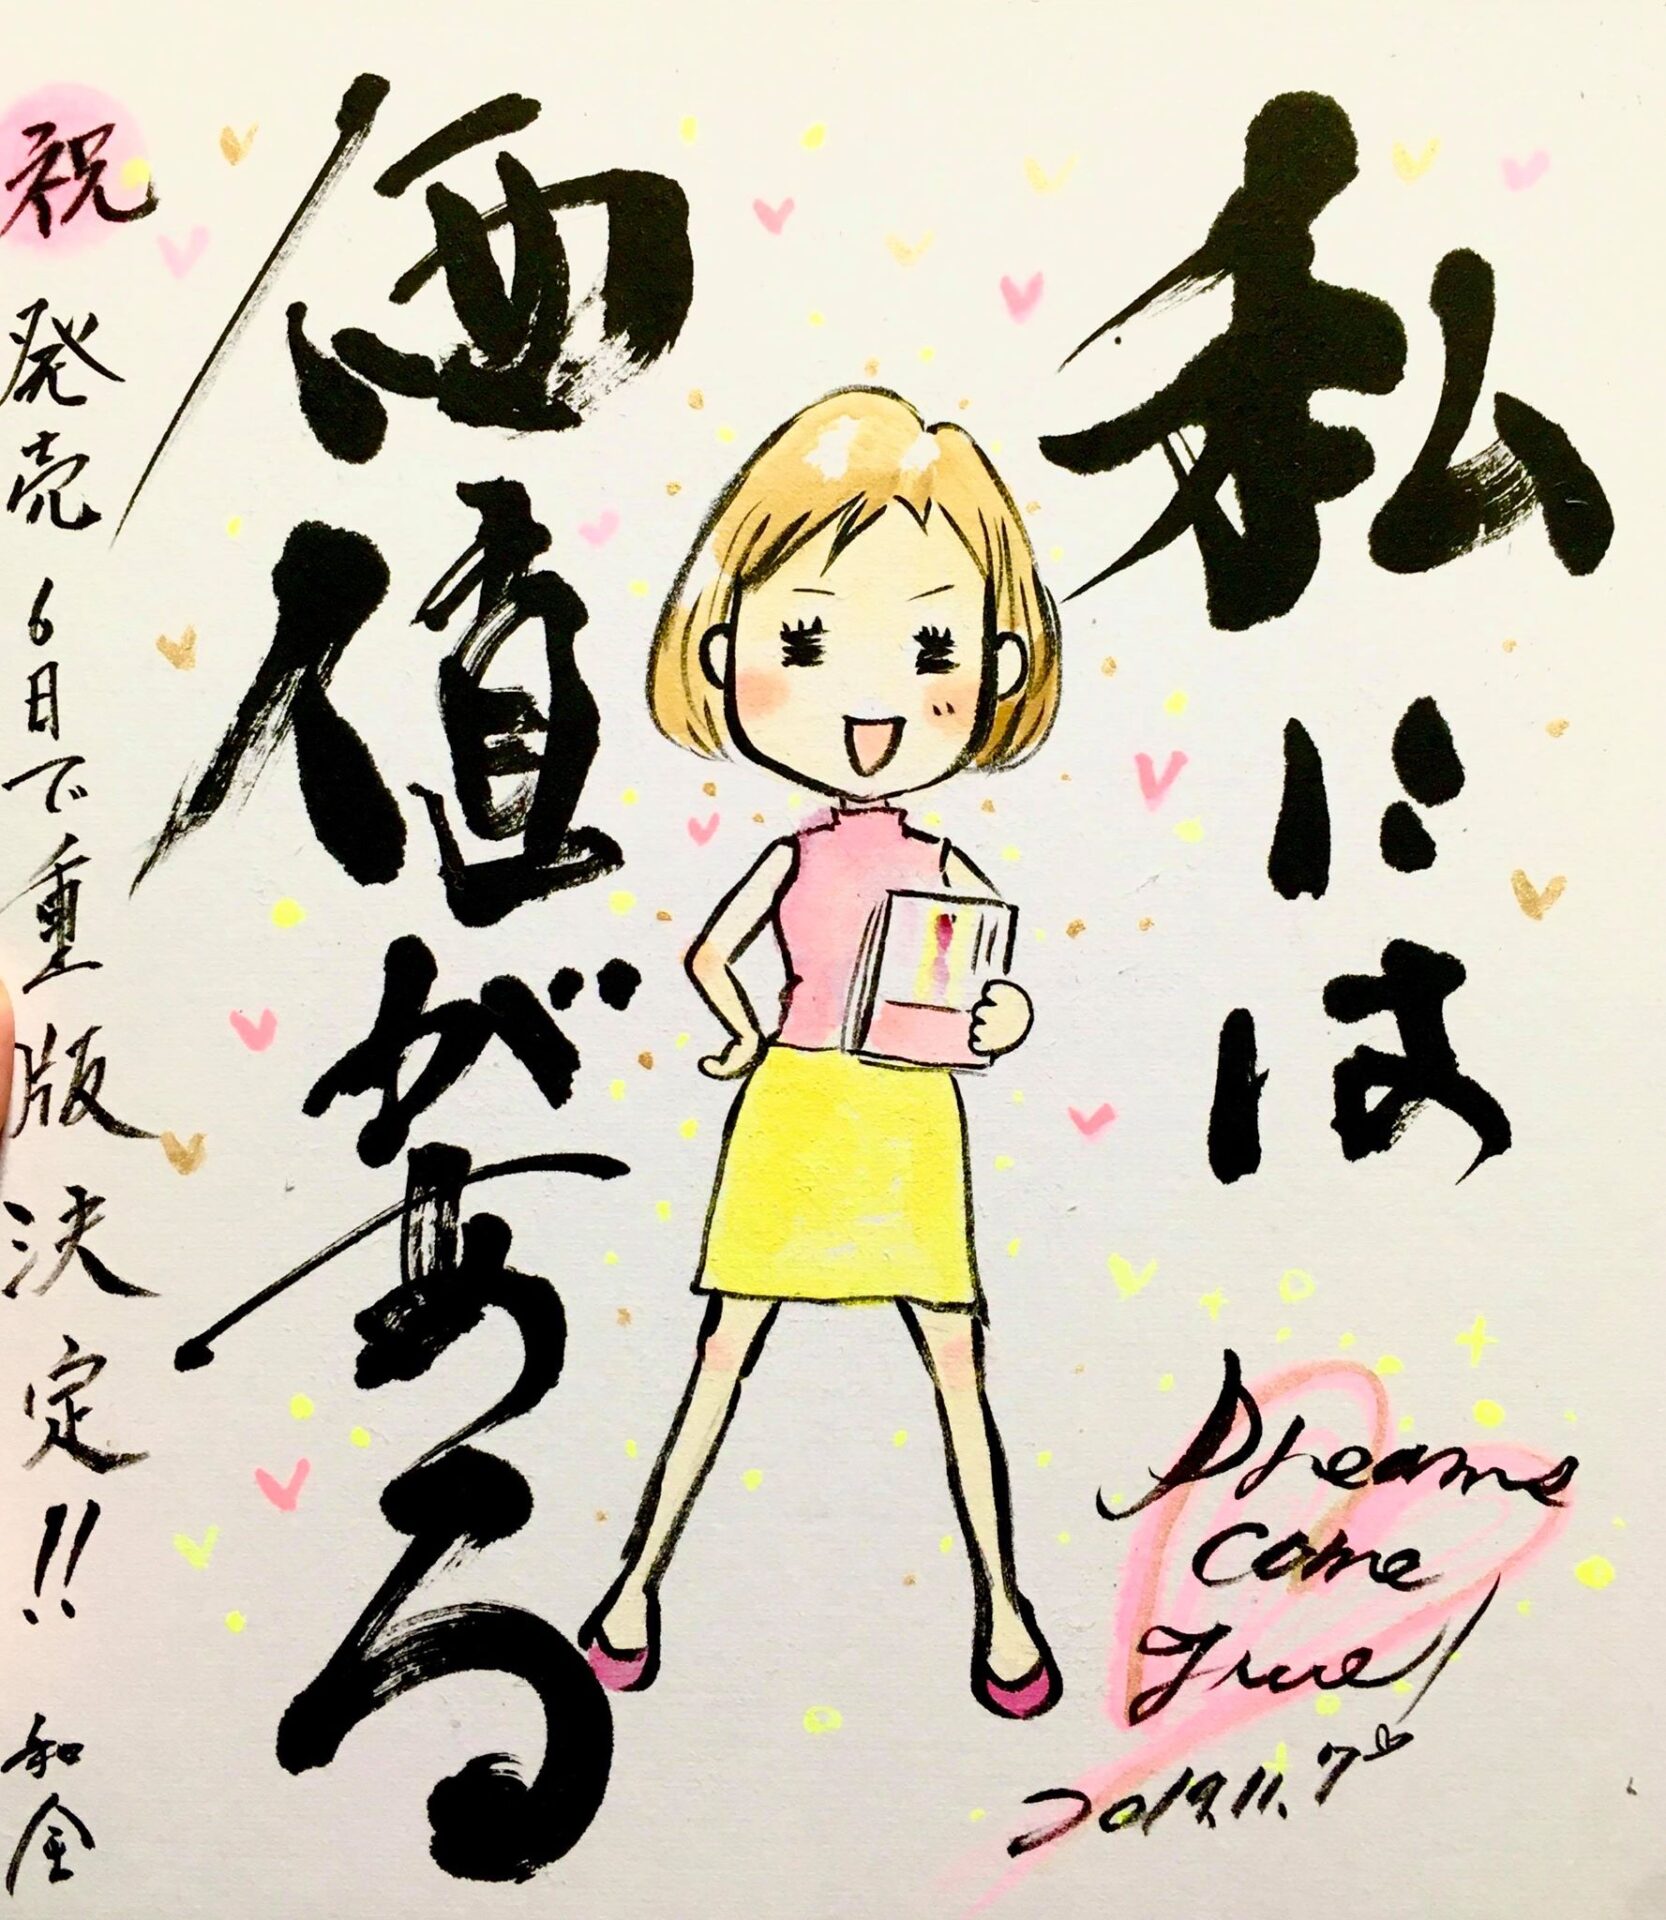 私には
価値がある
祝 発売6日で重版決定!!
和全
Dreams
come
true
2019.11.7